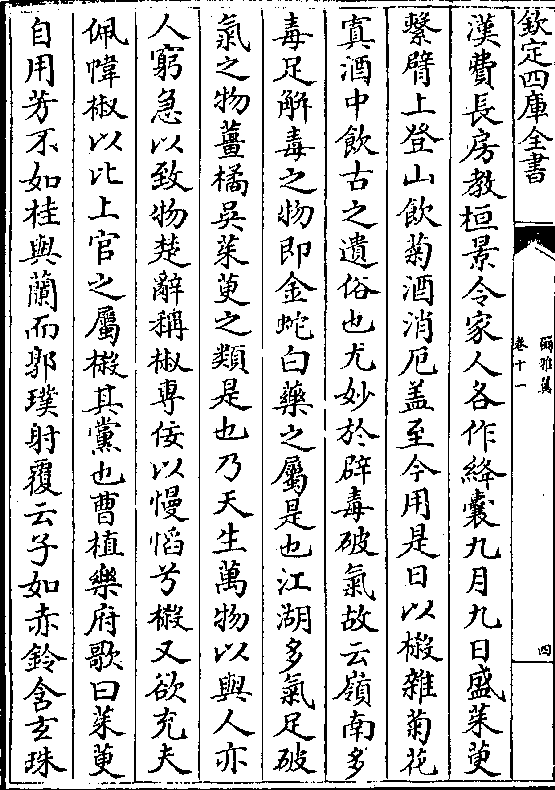 欽定四庫全書
爾雅翼
卷十一
四
漢費長房教桓景令家人各作絳囊九月九日盛茱萸
繫臂上登山飲菊酒消厄蓋至今用是日以樧雜菊花
寘酒中飲古之遺俗也尤妙於辟毒破氣故云嶺南多
毒足解毒之物即金蛇白藥之屬是也江湖多氣足破
氣之物薑橘吳茱萸之類是也乃天生萬物以與人亦
人窮急以致物楚辭稱椒專佞以慢慆兮樧又欲充夫
佩幃椒以比上官之屬樧其黨也曹植樂府歌曰茱萸
自用芳不如桂與蘭而郭璞射覆云子如赤鈴含玄珠